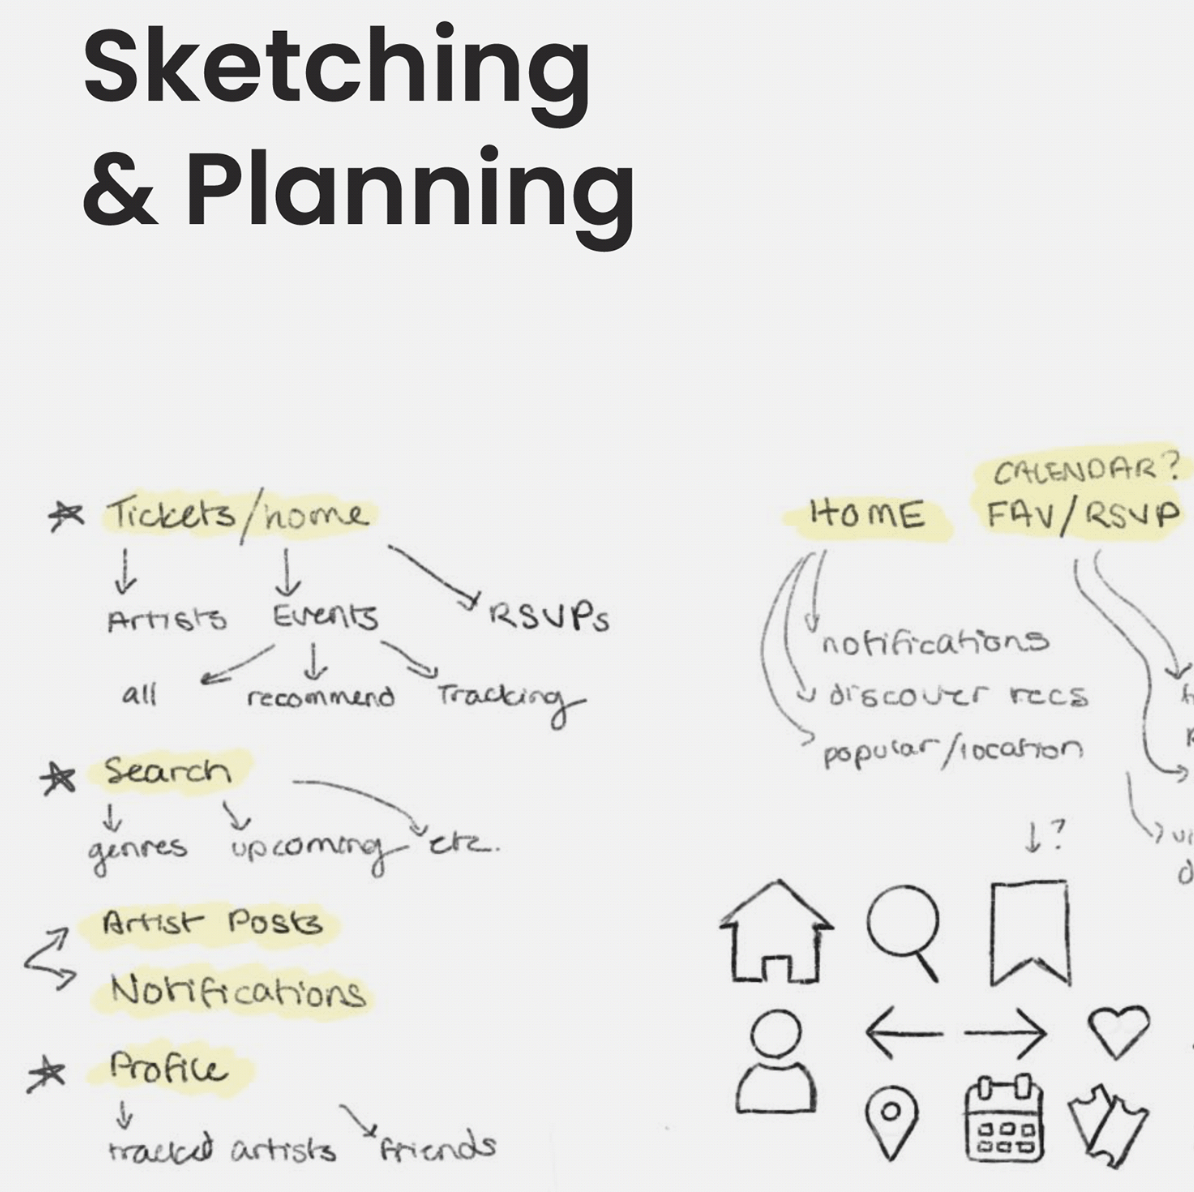 Sketching
& Planning
Tickets/home
Artists Events RSVPs
all recommend Tracking
Search
genres upcoming etc.
Artist Posts
Notifications
Profile
tracked artists friends
HOME
CALENDAR?
FAV/RSVP
notifications
discover recs
popular/location
?